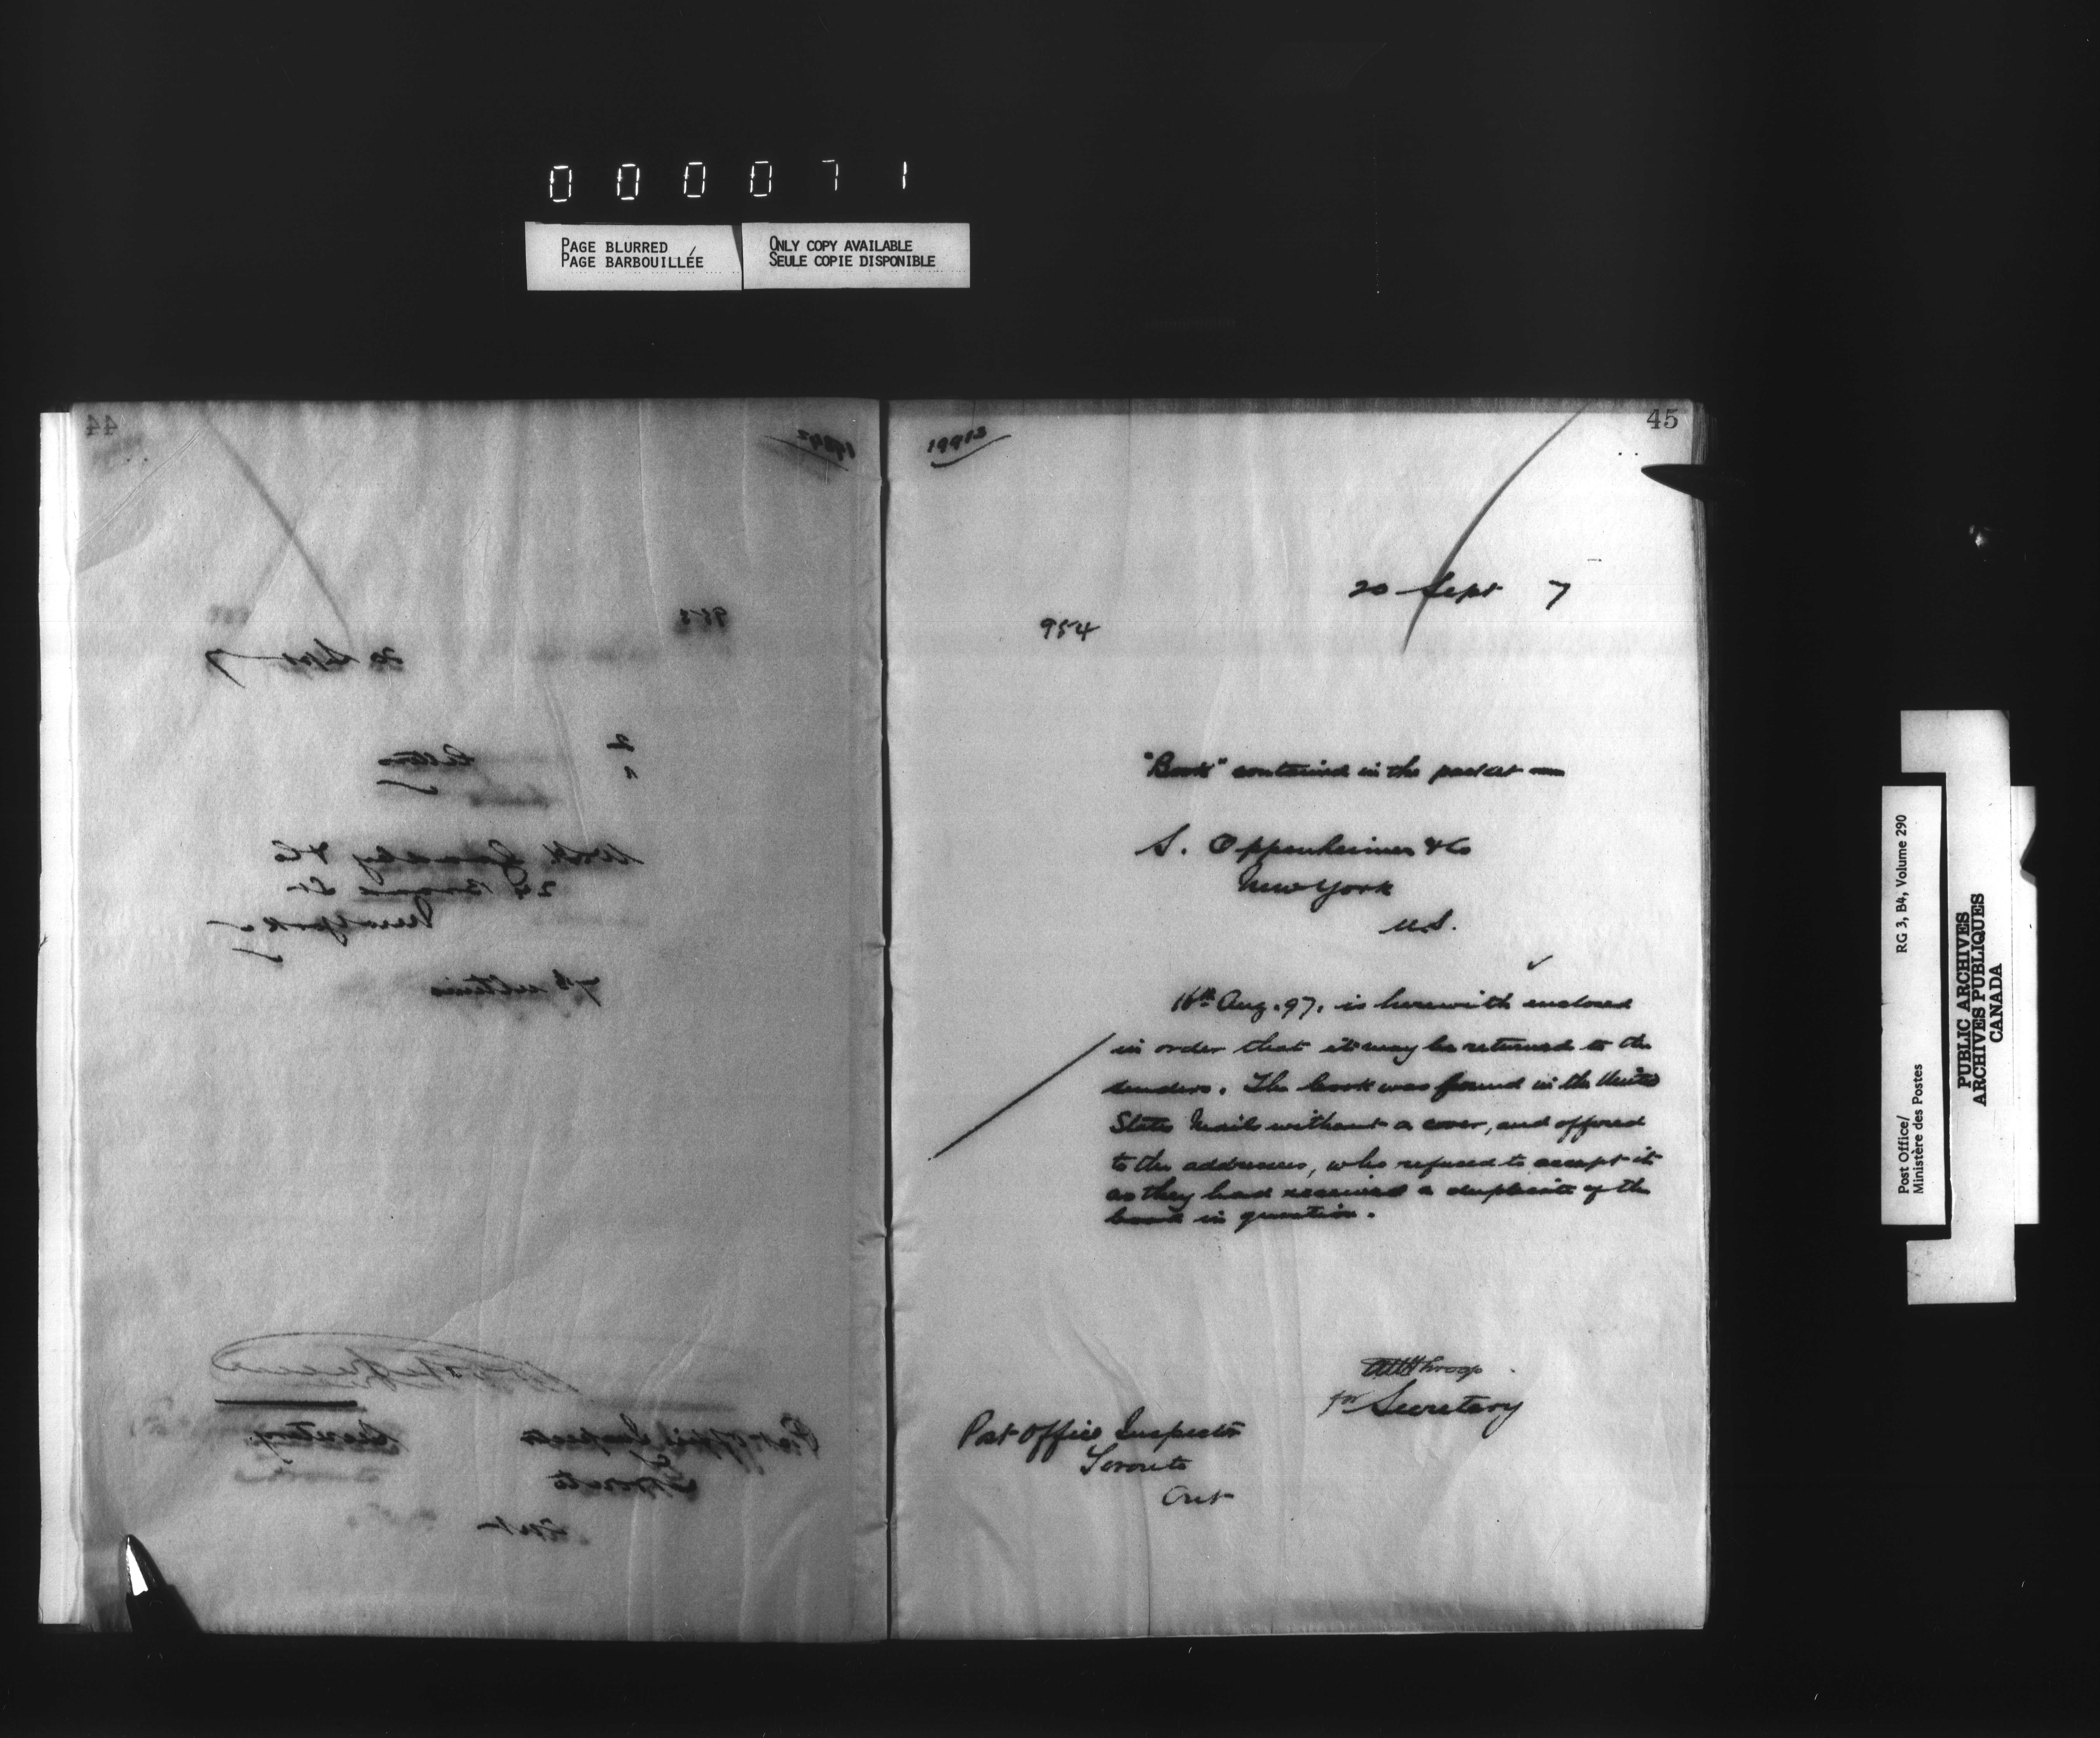 000071
PAGE BLURRED
PAGE BARBOUILLÉE
ONLY COPY AVAILABLE
SEULE COPIE DISPONIBLE
44
953
20 Sept 7
2
Letters
New York
Post Office Inspector
Toronto
Ont
Secretary
45
19913
20 Sept 7
954
"Book" contained in the packet —
S. Oppenheimer & Co
New York
U.S.
16th Aug. 97. is herewith enclosed
in order that it may be returned to the
senders. The book was found in the United
States Mails without a cover, and offered
to the addressees, who refused to accept it
as they had received a duplicate of the
book in question.
Throop
for Secretary
Post Office Inspector
Toronto
Ont
Post Office/
Ministère des Postes
RG 3, B4, Volume 290
PUBLIC ARCHIVES
ARCHIVES PUBLIQUES
CANADA